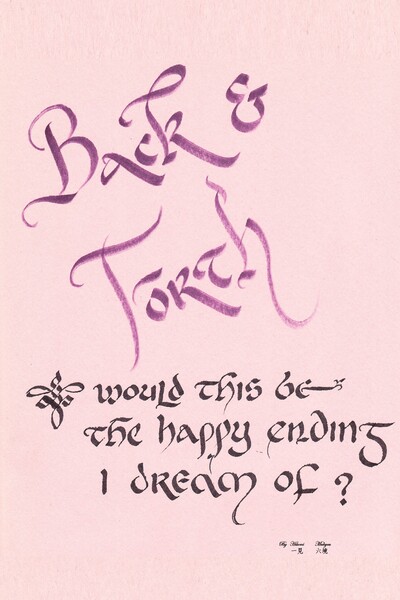 Back &
Torah
would this be
the happy ending
I dream of?
By
一見